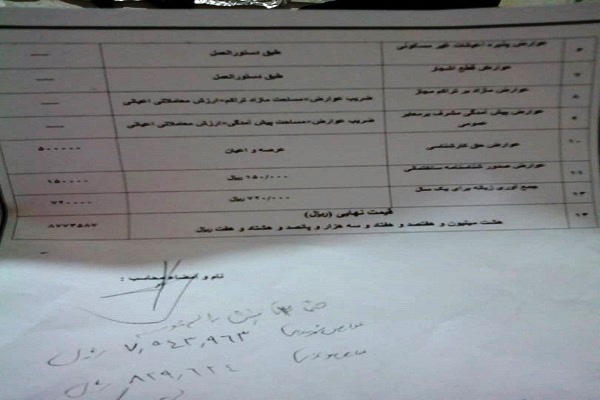 ۶ عوارض پذیره اعیانات غیر مسکونی طبق دستورالعمل ----
۷ عوارض قطع اشجار طبق دستورالعمل ----
۸ عوارض مازاد بر تراکم مجاز ضریب عوارض×مساحت مازاد تراکم×ارزش معاملاتی اعیانی ----
۹ عوارض پیش آمدگی مشرف برمعابر عمومی ضریب عوارض×مساحت پیش آمدگی×ارزش معاملاتی اعیانی ----
۱۰ عوارض حق کارشناسی عرصه و اعیان ۵۰۰۰۰۰
۱۱ عوارض صدور شناسنامه ساختمانی ۱۵۰/۰۰۰ ریال ۱۵۰۰۰۰
۱۲ جمع آوری زباله برای یک سال ۷۲۰/۰۰۰ ریال ۷۲۰۰۰۰
۱۳ قیمت نهایی (ریال)
هشت میلیون و هفتصد و هفتاد و سه هزار و پانصد و هشتاد و هفت ریال ۸۷۷۳۵۸۷
نام و امضاء محاسب :
۷,۹۴۳,۹۶۳ ریال
۸۲۹,۶۲۴ ریال